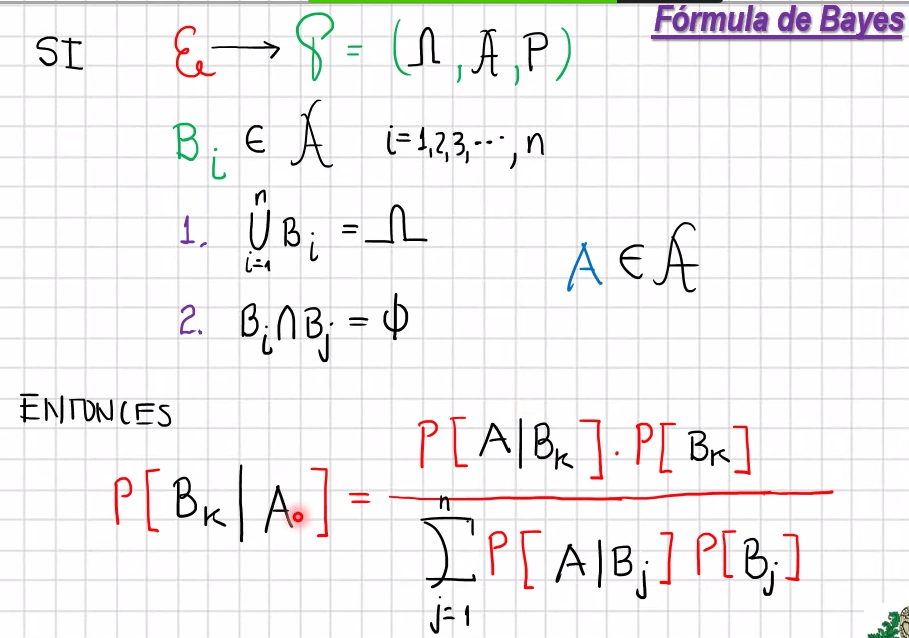 Fórmula de Bayes
SI ℰ → 𝒫 = (Ω, 𝔸, P)
Bᵢ ∈ 𝔸 i=1,2,3,⋯,n
1. ⋃ⁿᵢ₌₁ Bᵢ = Ω
A ∈ 𝔸
2. Bᵢ∩Bⱼ = ϕ
ENTONCES
P[Bₖ|A] = P[A|Bₖ]·P[Bₖ] / ∑ⁿⱼ₌₁ P[A|Bⱼ] P[Bⱼ]